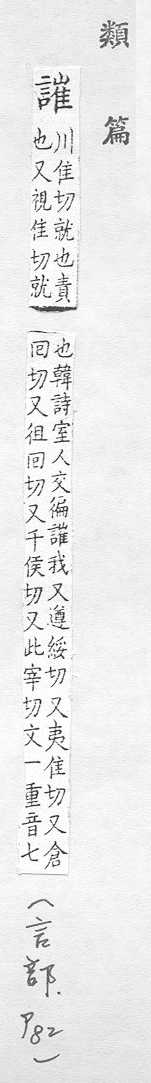 類篇
誰
川隹切就也責
也又視隹切就
也韓詩室人交徧誰我又遵綏切又夷隹切又倉
回切又徂回切又千侯切又此宰切文一重音七
(言部. P82)